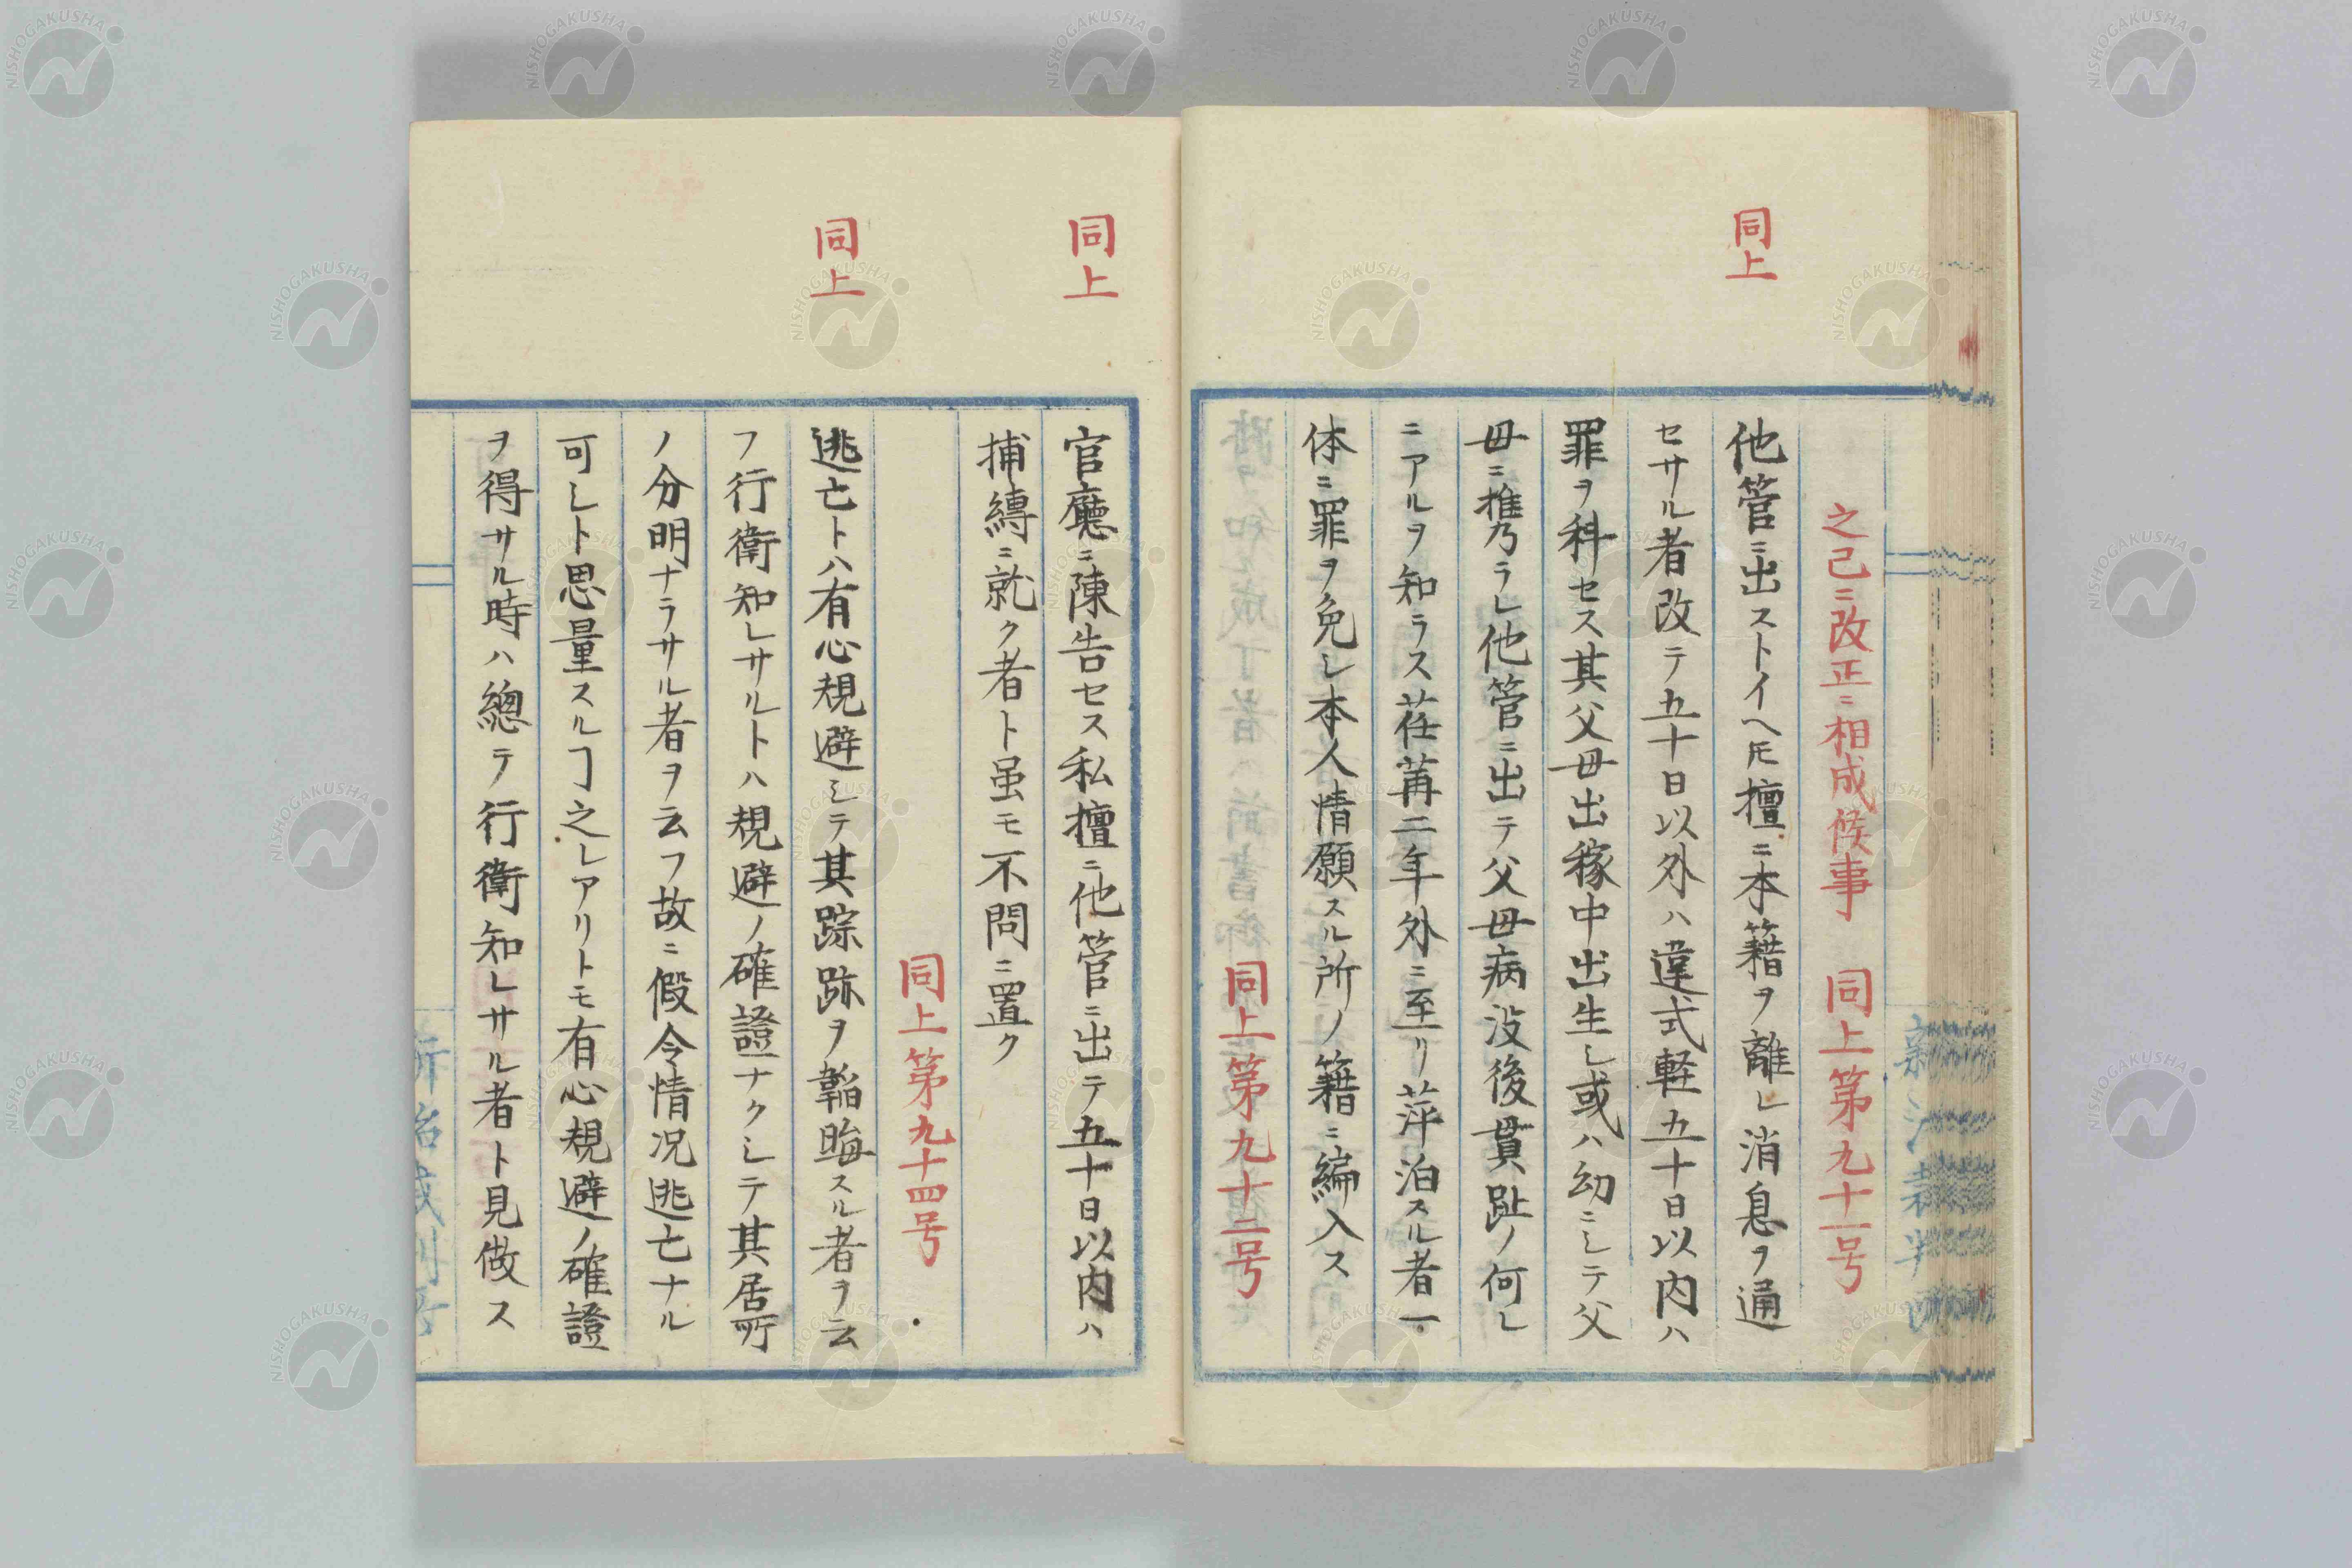 之已ニ改正ニ相成候事　同上第九十一号
同上
他管ニ出ストイヘ𪜈擅ニ本籍ヲ離レ消息ヲ通
セサル者改テ五十日以外ハ違式軽五十日以内ハ
罪ヲ科セス其父母出稼中出生し或ハ幼ニシテ父
母ニ推乃ラレ他管ニ出テ父母病没後貫趾ノ何レ
ニアルヲ知ラス荏苒二年外ニ至リ萍泊スル者一
体ニ罪ヲ免レ本人情願スル所ノ籍ニ編入ス
同上第九十二号
同上
官廳ニ陳告セス私擅ニ他管ニ出テ五十日以内ハ
捕縛ニ就ク者ト虽モ不問ニ置ク
同上第九十四号
同上
逃亡トハ有心規避シテ其踪跡ヲ韜晦スル者ヲ云
フ行衛知レサルトハ規避ノ確證ナクシテ其居所
ノ分明ナラサル者ヲ云フ故ニ假令情況逃亡ナル
可シト思量スルヿ之レアリトモ有心規避ノ確證
ヲ得サル時ハ總テ行衛知レサル者ト見做ス
NISHOGAKUSHA